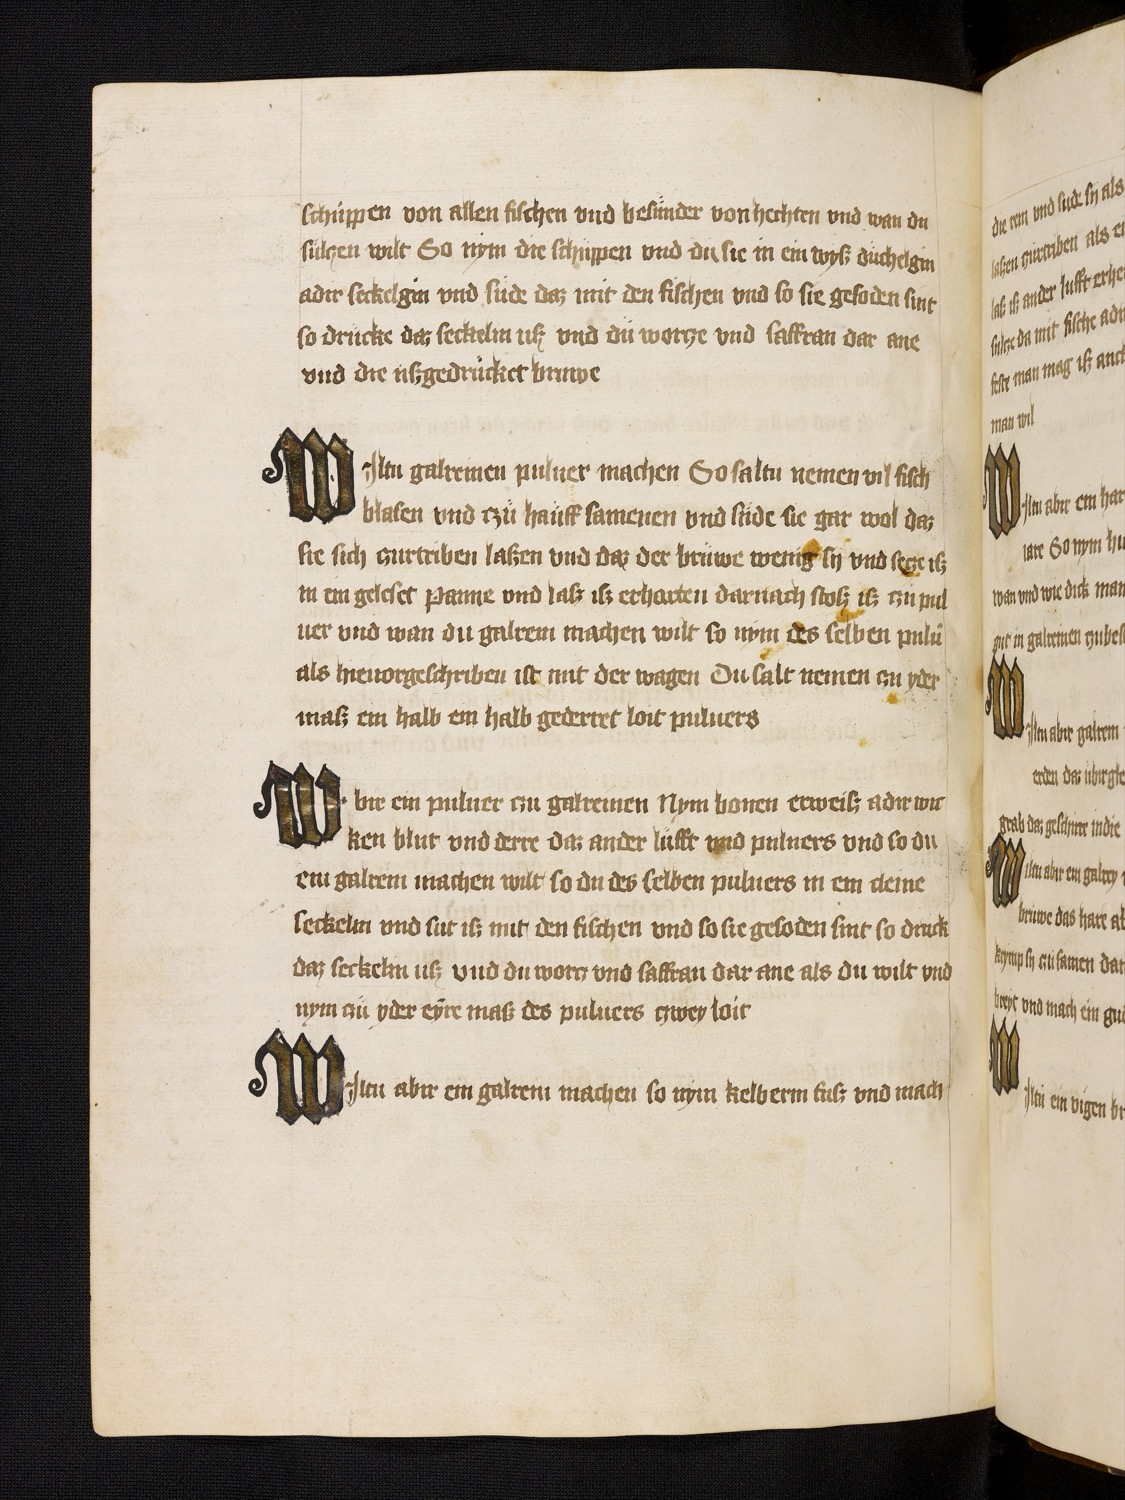 schüppen von allen fischen vnd besünder von hechten vnd wan du
sülczen wilt So nym die schuppen vnd du sie in ein wysz düchelgin
adir seckelgin vnd süde daz mit den fischen vnd so sie gesoden sint
so drücke daz seckelin usz vnd dü worcze vnd saffran dar ane
vnd die uszgedrücket bruwe
Wiltu galreinen puluer machen So saltu nemen vil fisch
blasen vnd czü hauff samenen vnd süde sie gar wol daz
sie sich zurtriben laszen vnd daz der brüwe wenig sy vnd secze isz
in ein geleset panne vnd lasz isz erharten darnach stosz isz czu pul
uer vnd wan du galrein machen wilt so nym des selben pulu
als hieuorgeschriben ist mit der wagen Du salt nemen czu yder
masz ein halb ein halb gederret loit puluers
Wbir ein puluer czu galreinen Nym bonen erweisz adir wic
ken blut vnd derre daz ander lüfft vnd puluers vnd so du
ein galrein machen wilt so du des selben puluers in ein cleine
seckelin vnd sut isz mit den fischen vnd so sie gesoden sint so druck
daz seckelin usz vnd du worcz vnd saffran dar ane als du wilt vnd
nym czü yder eyre masz des puluers czwey loit
Wiltu abir ein galrein machen so nym kelberin fusz vnd mach
die rein vnd sude sy als
laszen zurtriben als
lasz isz ander lufft
sulcze da mit fische
feste man mag isz auch
man wil
Wiltu abir ein har
iare So nym
wan vnd wie dick man
gut in galreinen
Wiltu abir galrein
erden daz
grab daz geschirre in die
Wiltu abir ein galrey
brüwe das hare
sy czu samen dar
vnd mach ein gud
Wiltu ein vigen